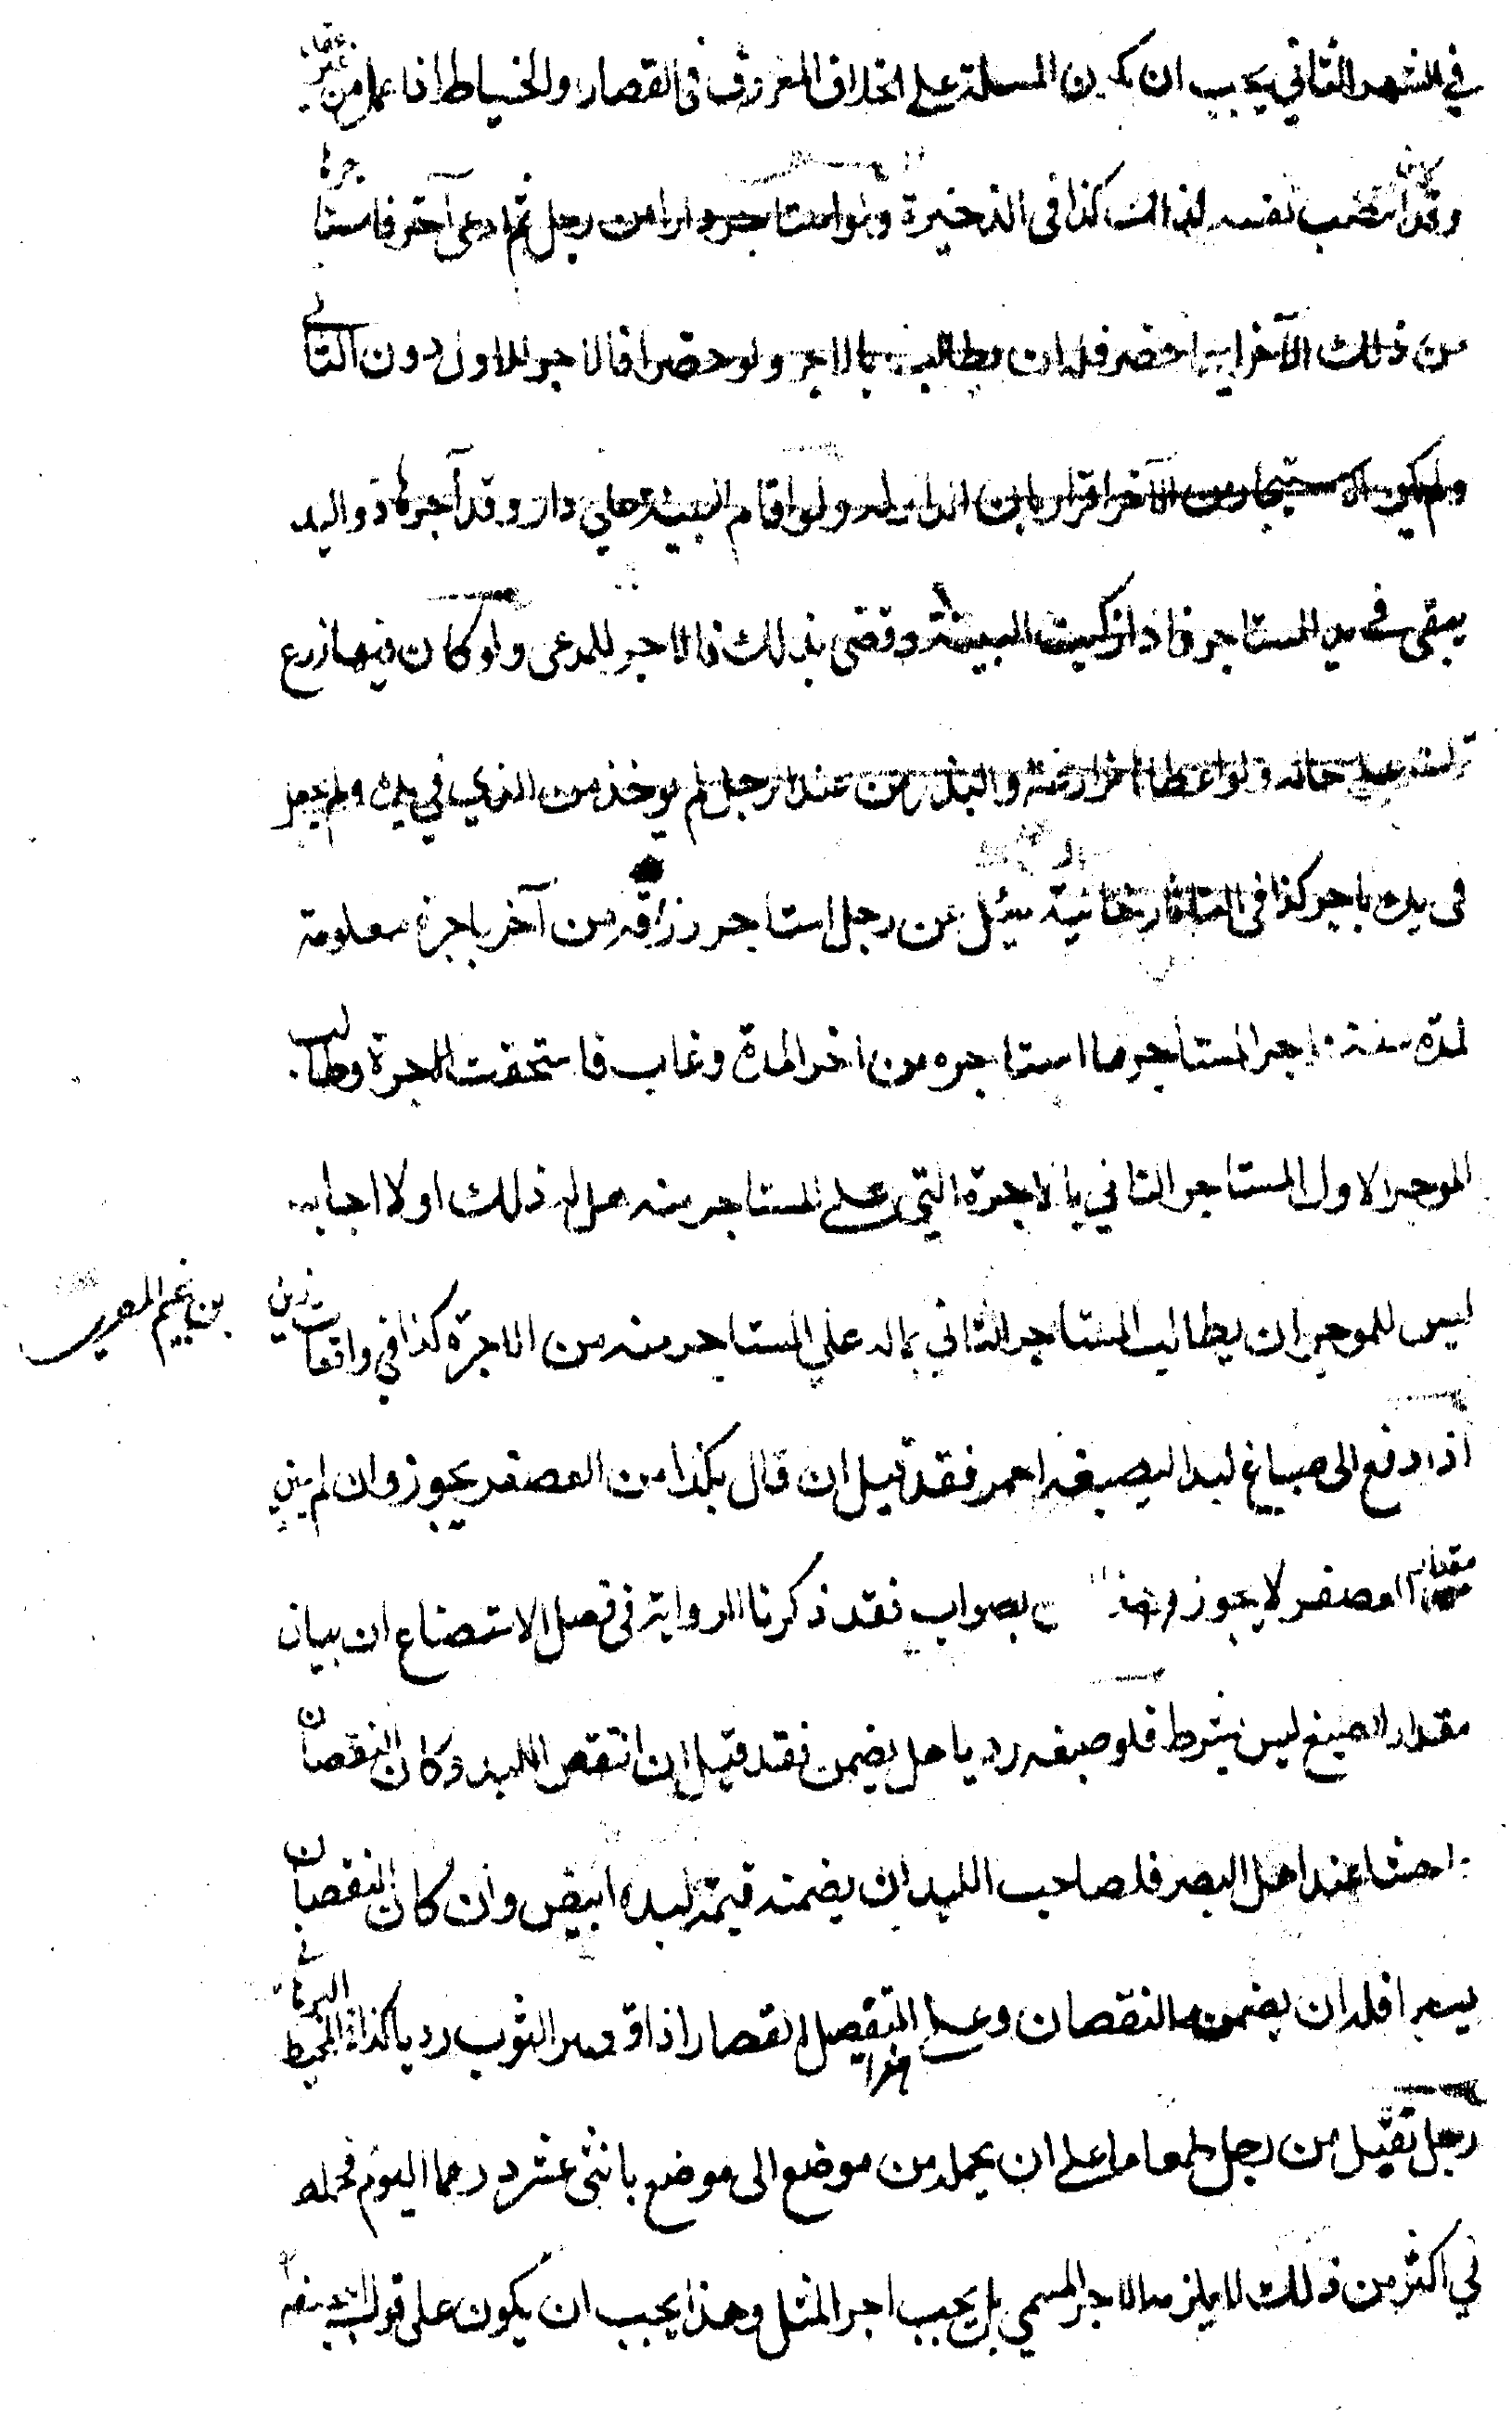 في الشهر الثاني يجب ان يكون المسلة على الخلاف المعروف في القصار والخياط اذا عمل من غير عقد
وقد انتصب نفسه لذالك كذا في الذخيرة ولو استاجر دارا من رجل ثم ادعى آخر فاستاجرها
من ذلك الآخر ايهما حضر فله ان يطالبه بالاجر ولو حضرا فالاجر للاول دون الثاني
ولم يكن الاستيجار من الآخر اقرارا بان الدار له ولو اقام البينة على دار وقد آجرها ذو اليد
يبقى في يد المستاجر فاذا زكيت البينة وقضى بذلك فالاجر للمدعى ولو كان فيها زرع
ترك على حاله ولو اعطا مزارعة والبذر من عند الرجل لم يوخذ من الذي في يده ولم يجعل
في يده باجر كذا في التاتارخانية سئل عن رجل استاجر رزقة من آخر باجرة معلومة
لمدة سنة اجر المستاجر ما استاجره من اخر المدة وغاب فاستحقت الاجرة وطالب
الموجر الاول المستاجر الثاني بالاجرة التي على المستاجر منه هل له ذلك اولا اجاب
ليس للموجر ان يطالب المستاجر الثاني بماله على المستاجر منه من الاجرة كذا في واقعات زين بن نجيم المصري
اذا دفع الى صباغ لبدا ليصبغه احمر فقد قيل ان قال بكذا من العصفر يجوز وان لم يبين
مقدار العصفر لا يجوز وهذا ليس بصواب فقد ذكرنا الرواية في فصل الاستصناع ان بيان
مقدار الصبغ ليس بشرط فلو صبغه رديا هل يضمن فقد قيل ان انتقص اللبد وكان النقصان
فاحشا عند اهل البصر فلصاحب اللبد ان يضمنه قيمة لبده ابيض وان كان النقصان
يسيرا فله ان يضمنه النقصان وعلى هذا التفصيل القصار اذا قصر الثوب رديا كذا في المحيط البرهاني
رجل تقبل من رجل طعاما على ان يحمله من موضع الى موضع باثنى عشر درهما اليوم فحمله
في اكثر من ذلك لا يلزمه الاجر المسمي بل يجب اجر المثل وهذا يجب ان يكون على قول